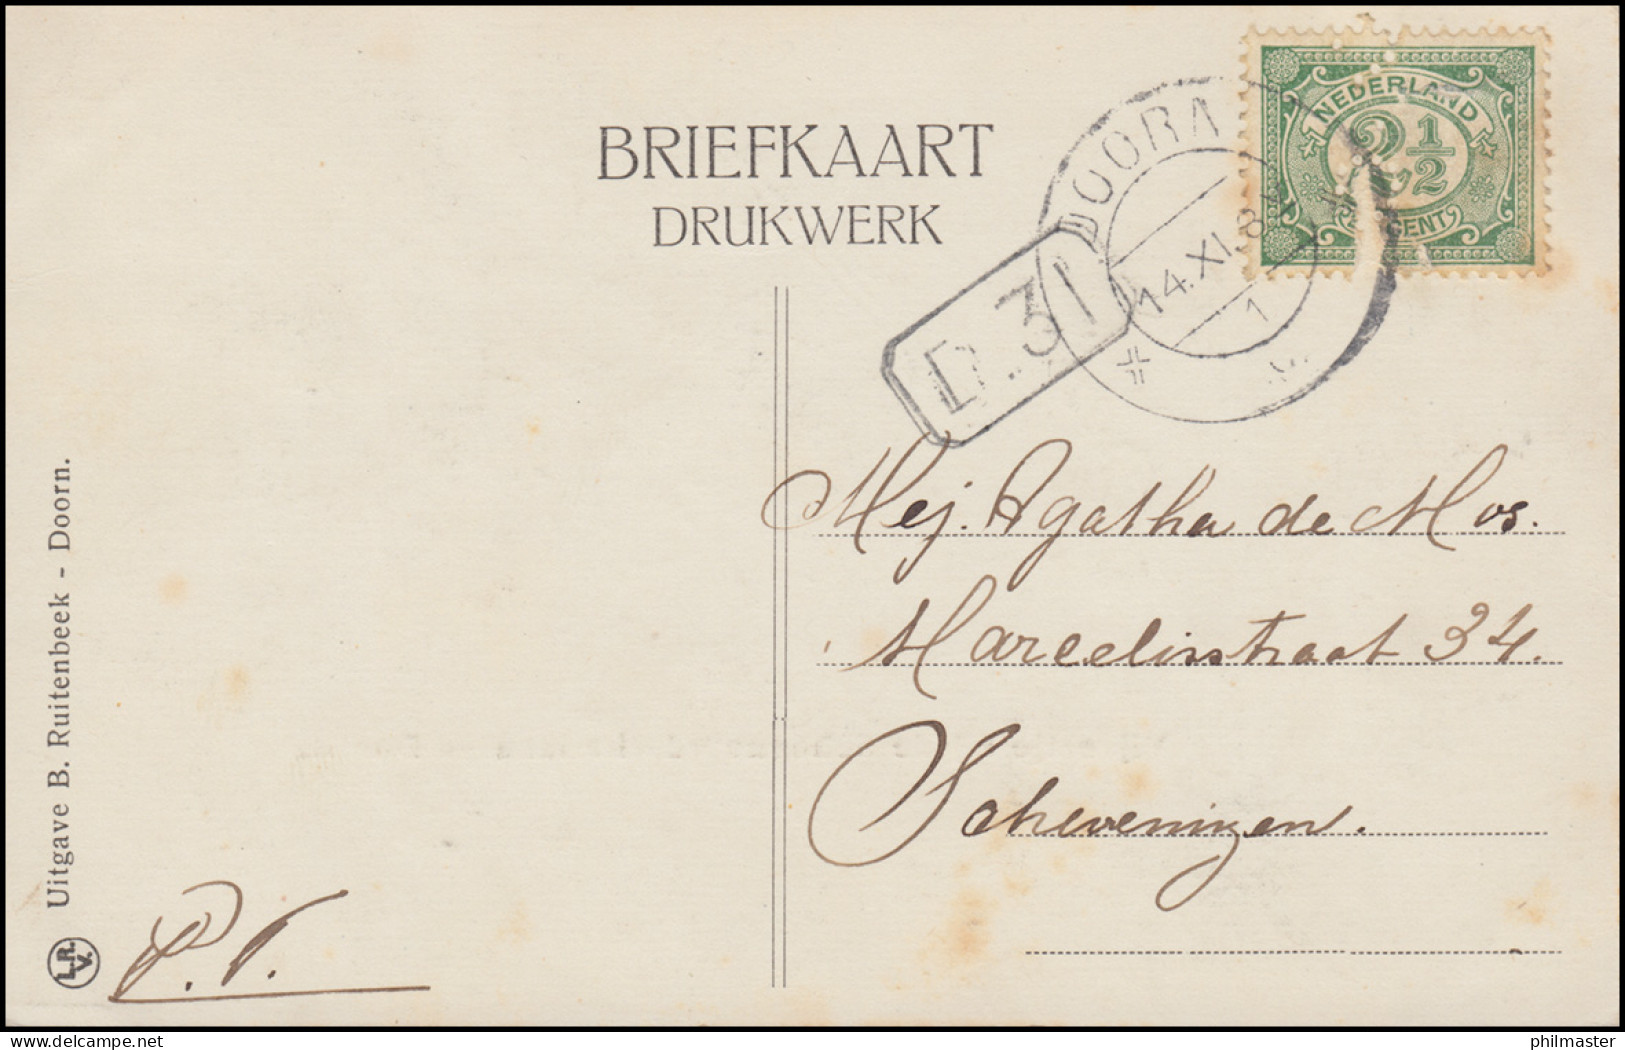 BRIEFKAART
DRUKWERK
NEDERLAND
2 1/2
CENT
DOORN
14.XI
1
D.31
Mej. Agatha de Mos.
Marcelisstraat 34.
Scheveningen.
Uitgave B. Ruitenbeek - Doorn.
L.R.
V.
P.V.
philmaster